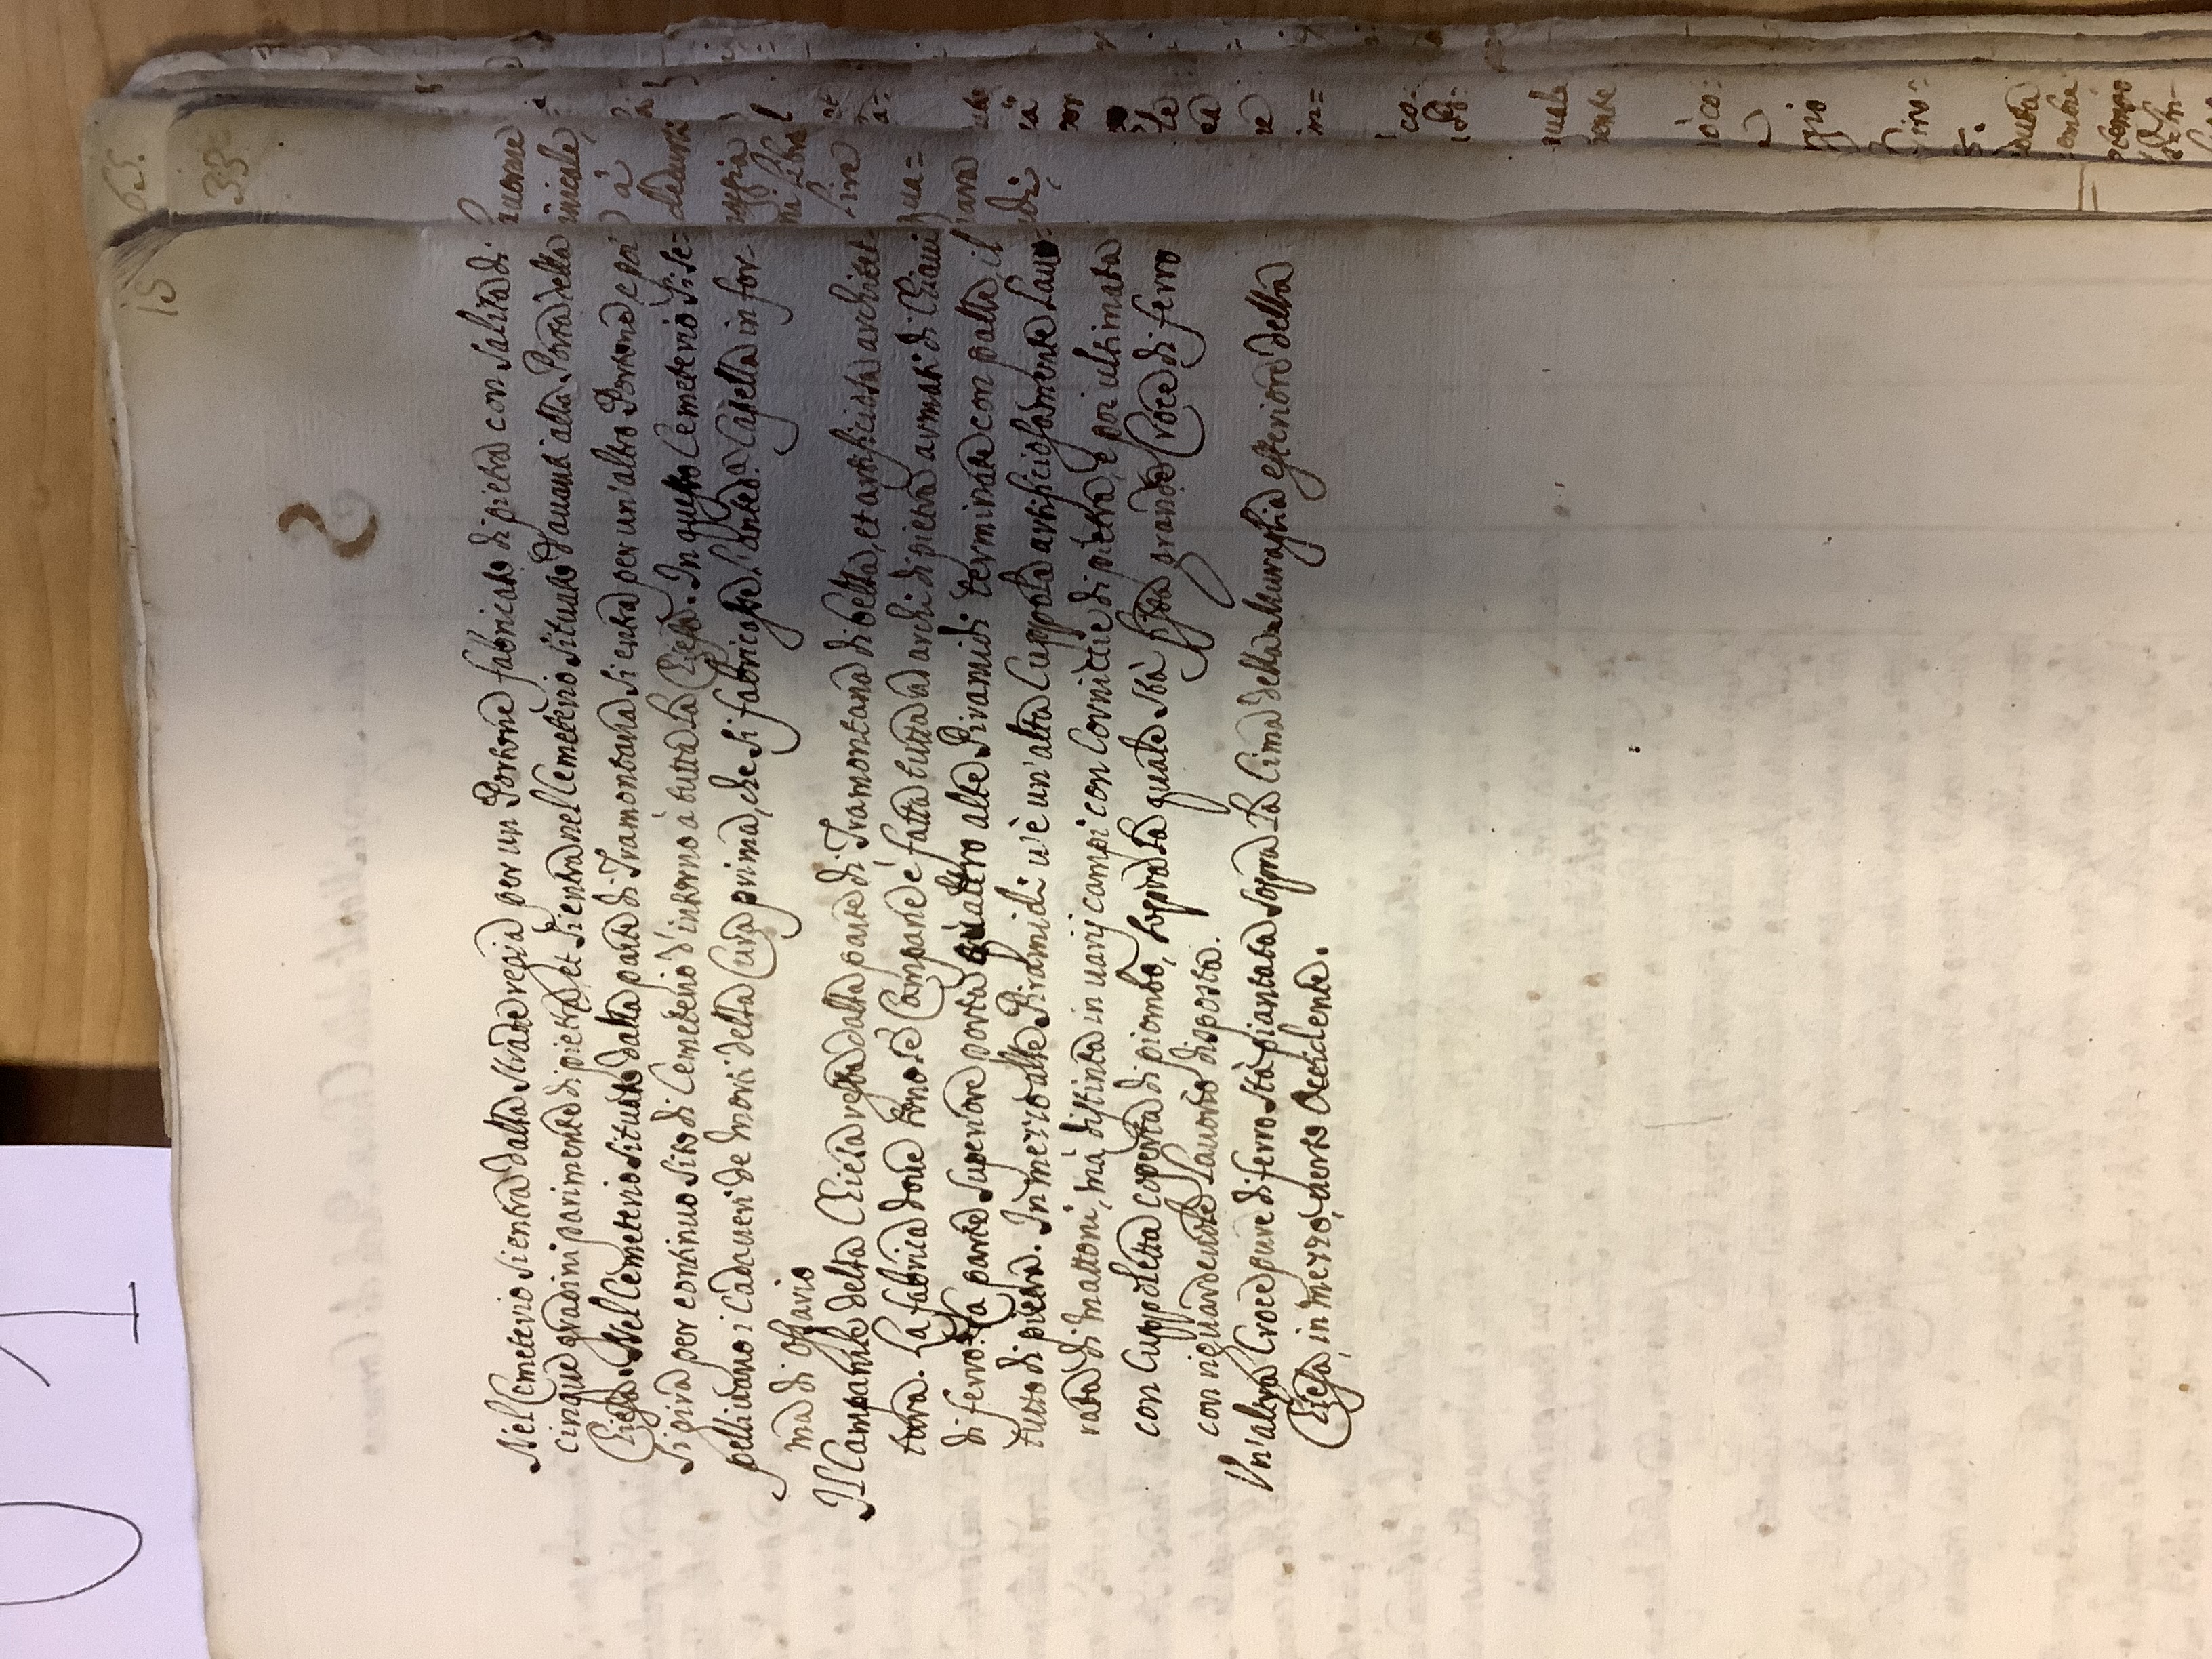 15
Nel Cemeterio si entra dalla strada regia per un Portone fabricato di pietra con salita di
cinque gradini parimente di pietra, et si entra nel Cemeterio situato davanti alla Porta della
Chiesa. Nel Cemeterio situato dalla parte di Tramontana si entra per un'altro Portone e poi
si gira per continuo sito di Cemeterio d'intorno à tutta la Chiesa. In questo Cemeterio si se=
pelliuano i Cadaueri de morti della Cura prima, che si fabricasse l'anteda. Capella in for-
ma di Ossario
Il Campanile della Chiesa resta dalla parte di Tramontana di bella, et artificiosa architet-
tura. La fabrica doue sono le Campane è fatta tutta ad archi di pietra armati di Chiaui
di ferro. La parte superiore porta quattro alte Piramidi terminate con palle il
tutto di pietra. In mezzo alle Piramidi u'è un'alta Cuppola artificiosamente lauo=
rata di mattoni, mà distinta in uarij campi con Cornicie di pietra, e poi ultimata
con Cuppoletta coperta di piombo, sopra la quale stà fissa grande Croce di ferro
con riguardeuole lauoro disposta.
Un'altra Croce pure di ferro stà piantata sopra la Cima della Muraglia esteriore della
Chiesa, in mezzo, uerso Occidente.
33